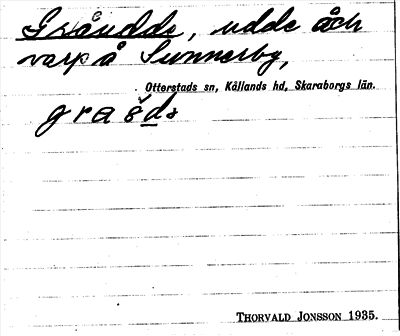 Gråudde, udde åch
varp å Sunnerby,
Otterstads sn, Kållands hd, Skaraborgs län.
THORVALD JONSSON 1935.